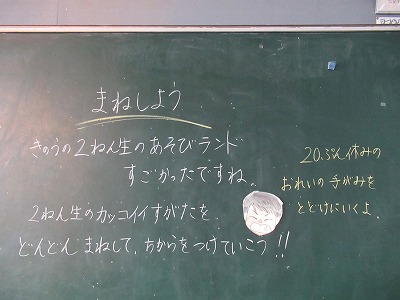 まねしよう
きのうの2ねん生のあそびランド
すごかったですね。
2ねん生のカッコイイすがたを
どんどんまねして、ちからをつけていこう!!
20ぷん休みの
おれいの手がみを
とどけにいくよ。